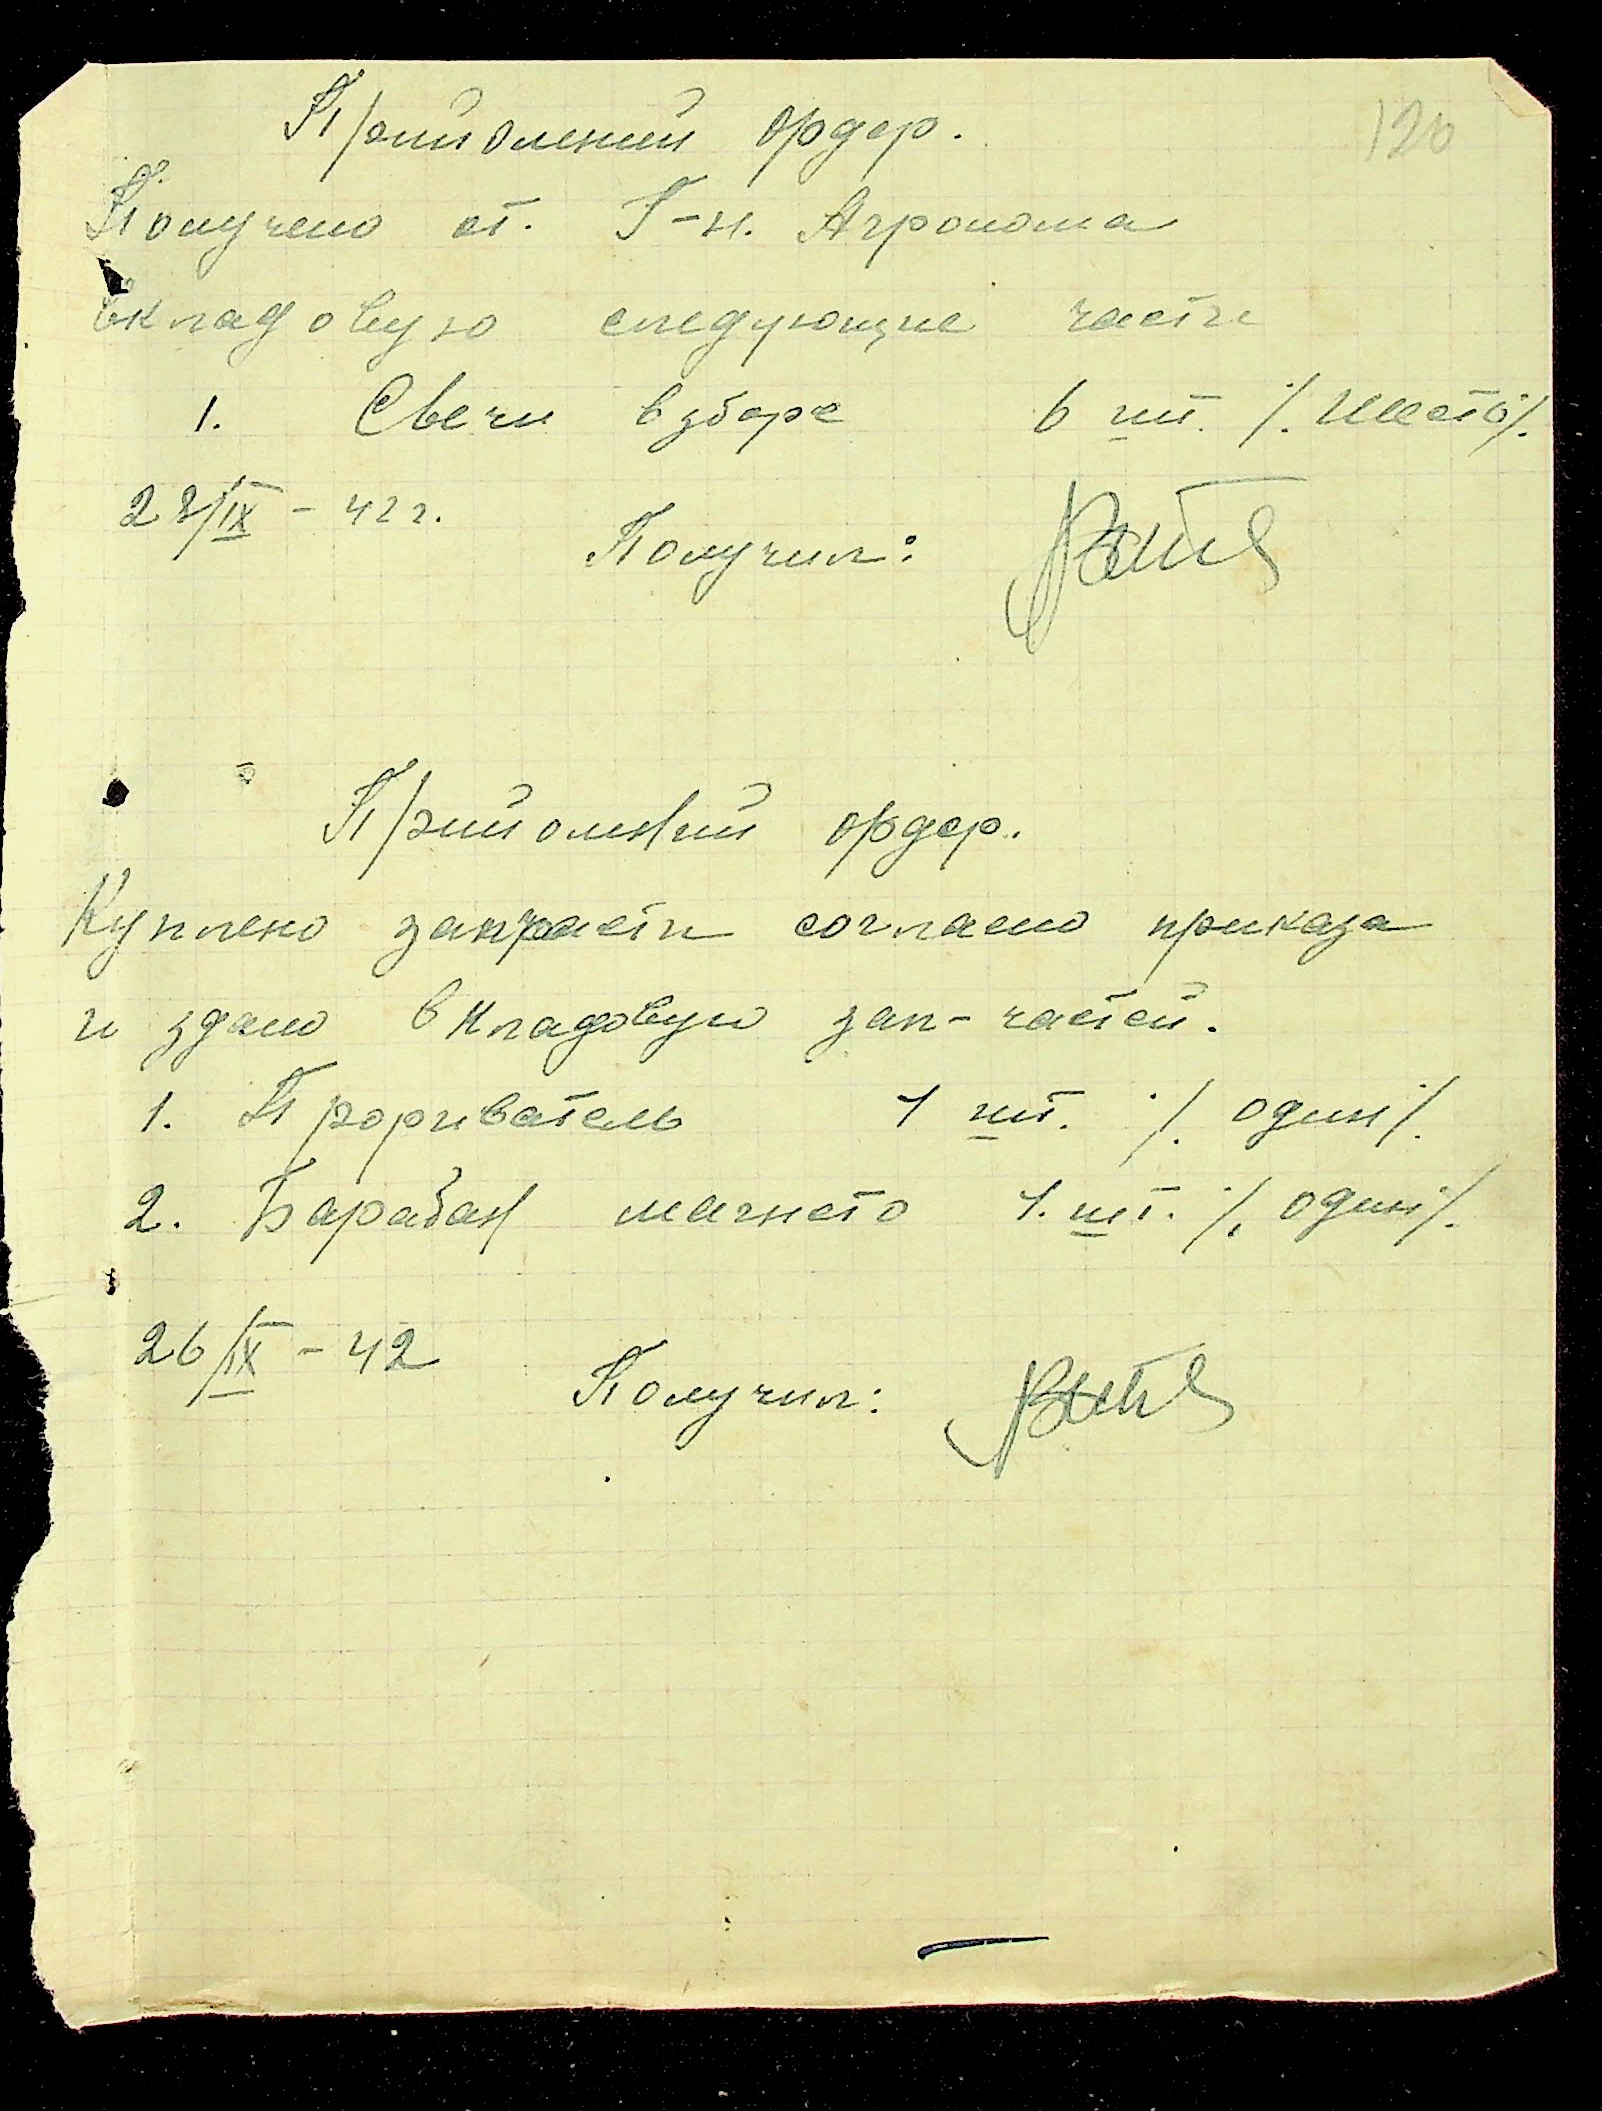 120
Прийомений ордер.
Получено от. Г-н. Агронома
вкладовую следующие части
1. Свечи взборе 6 шт. /. Шесть/.
28/IX - 42 г.
Получил:
Прийомний ордер.
Куплено запчасти согласно приказа
и здано в кладовую зап-частей.
1. Прориватель 1 шт. /. один/.
2. Барабан магнето 1. шт. /. один/.
26/IX - 42
Получил: